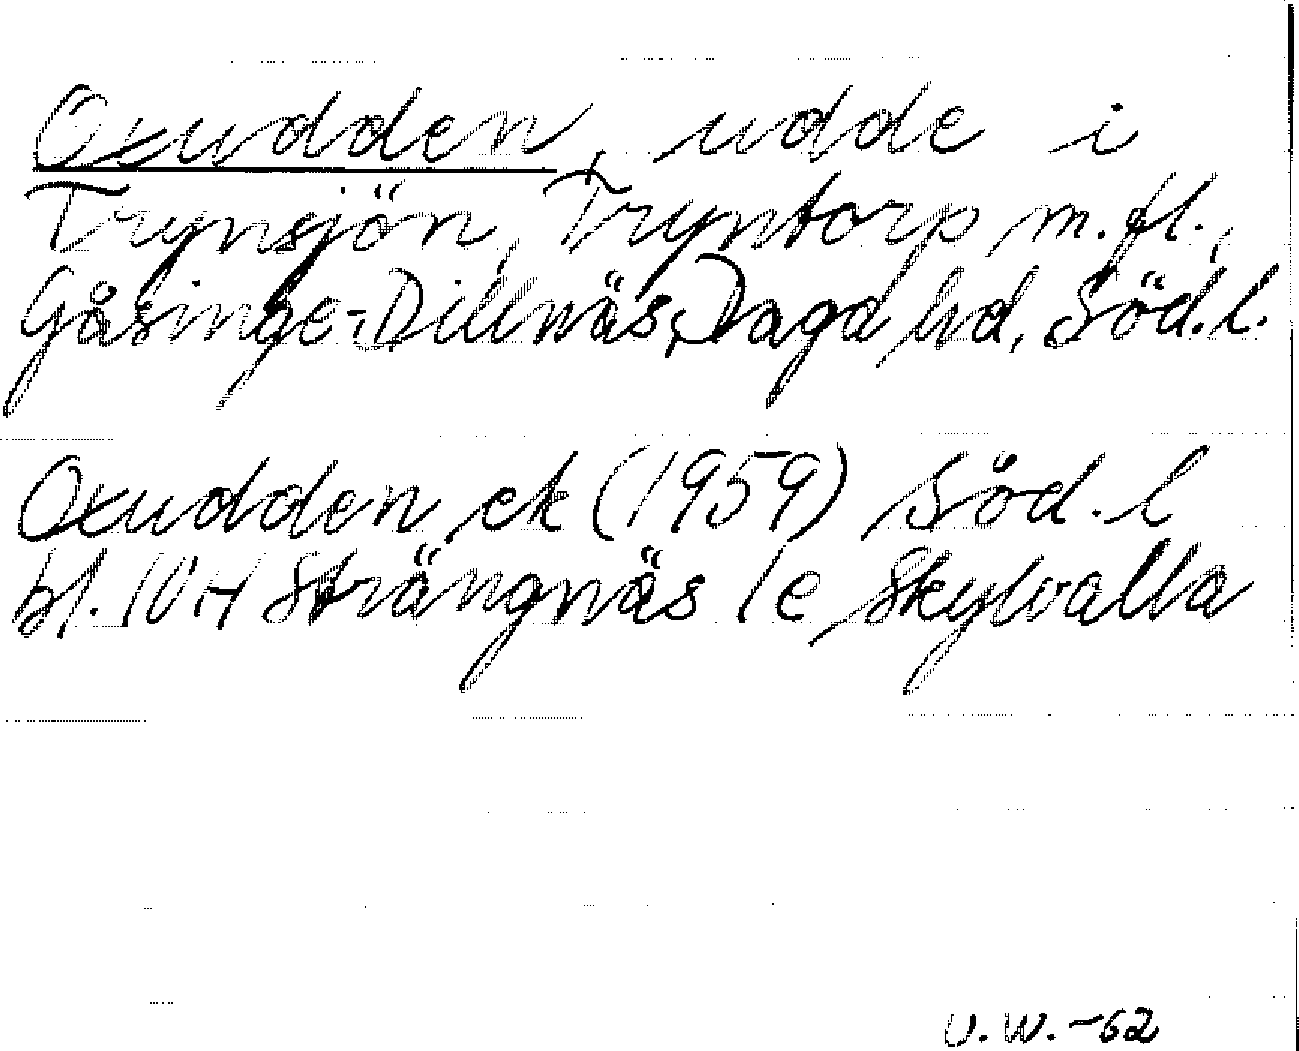 Oxudden, udde i
Trynsjön, Tryntorp m.fl.,
Gåsinge-Dillnäs, Daga hd, Söd.l.
Oxudden ek (1959) Söd. l
bl. 10H Strängnäs 1e, Skylvalla
U.W.-62